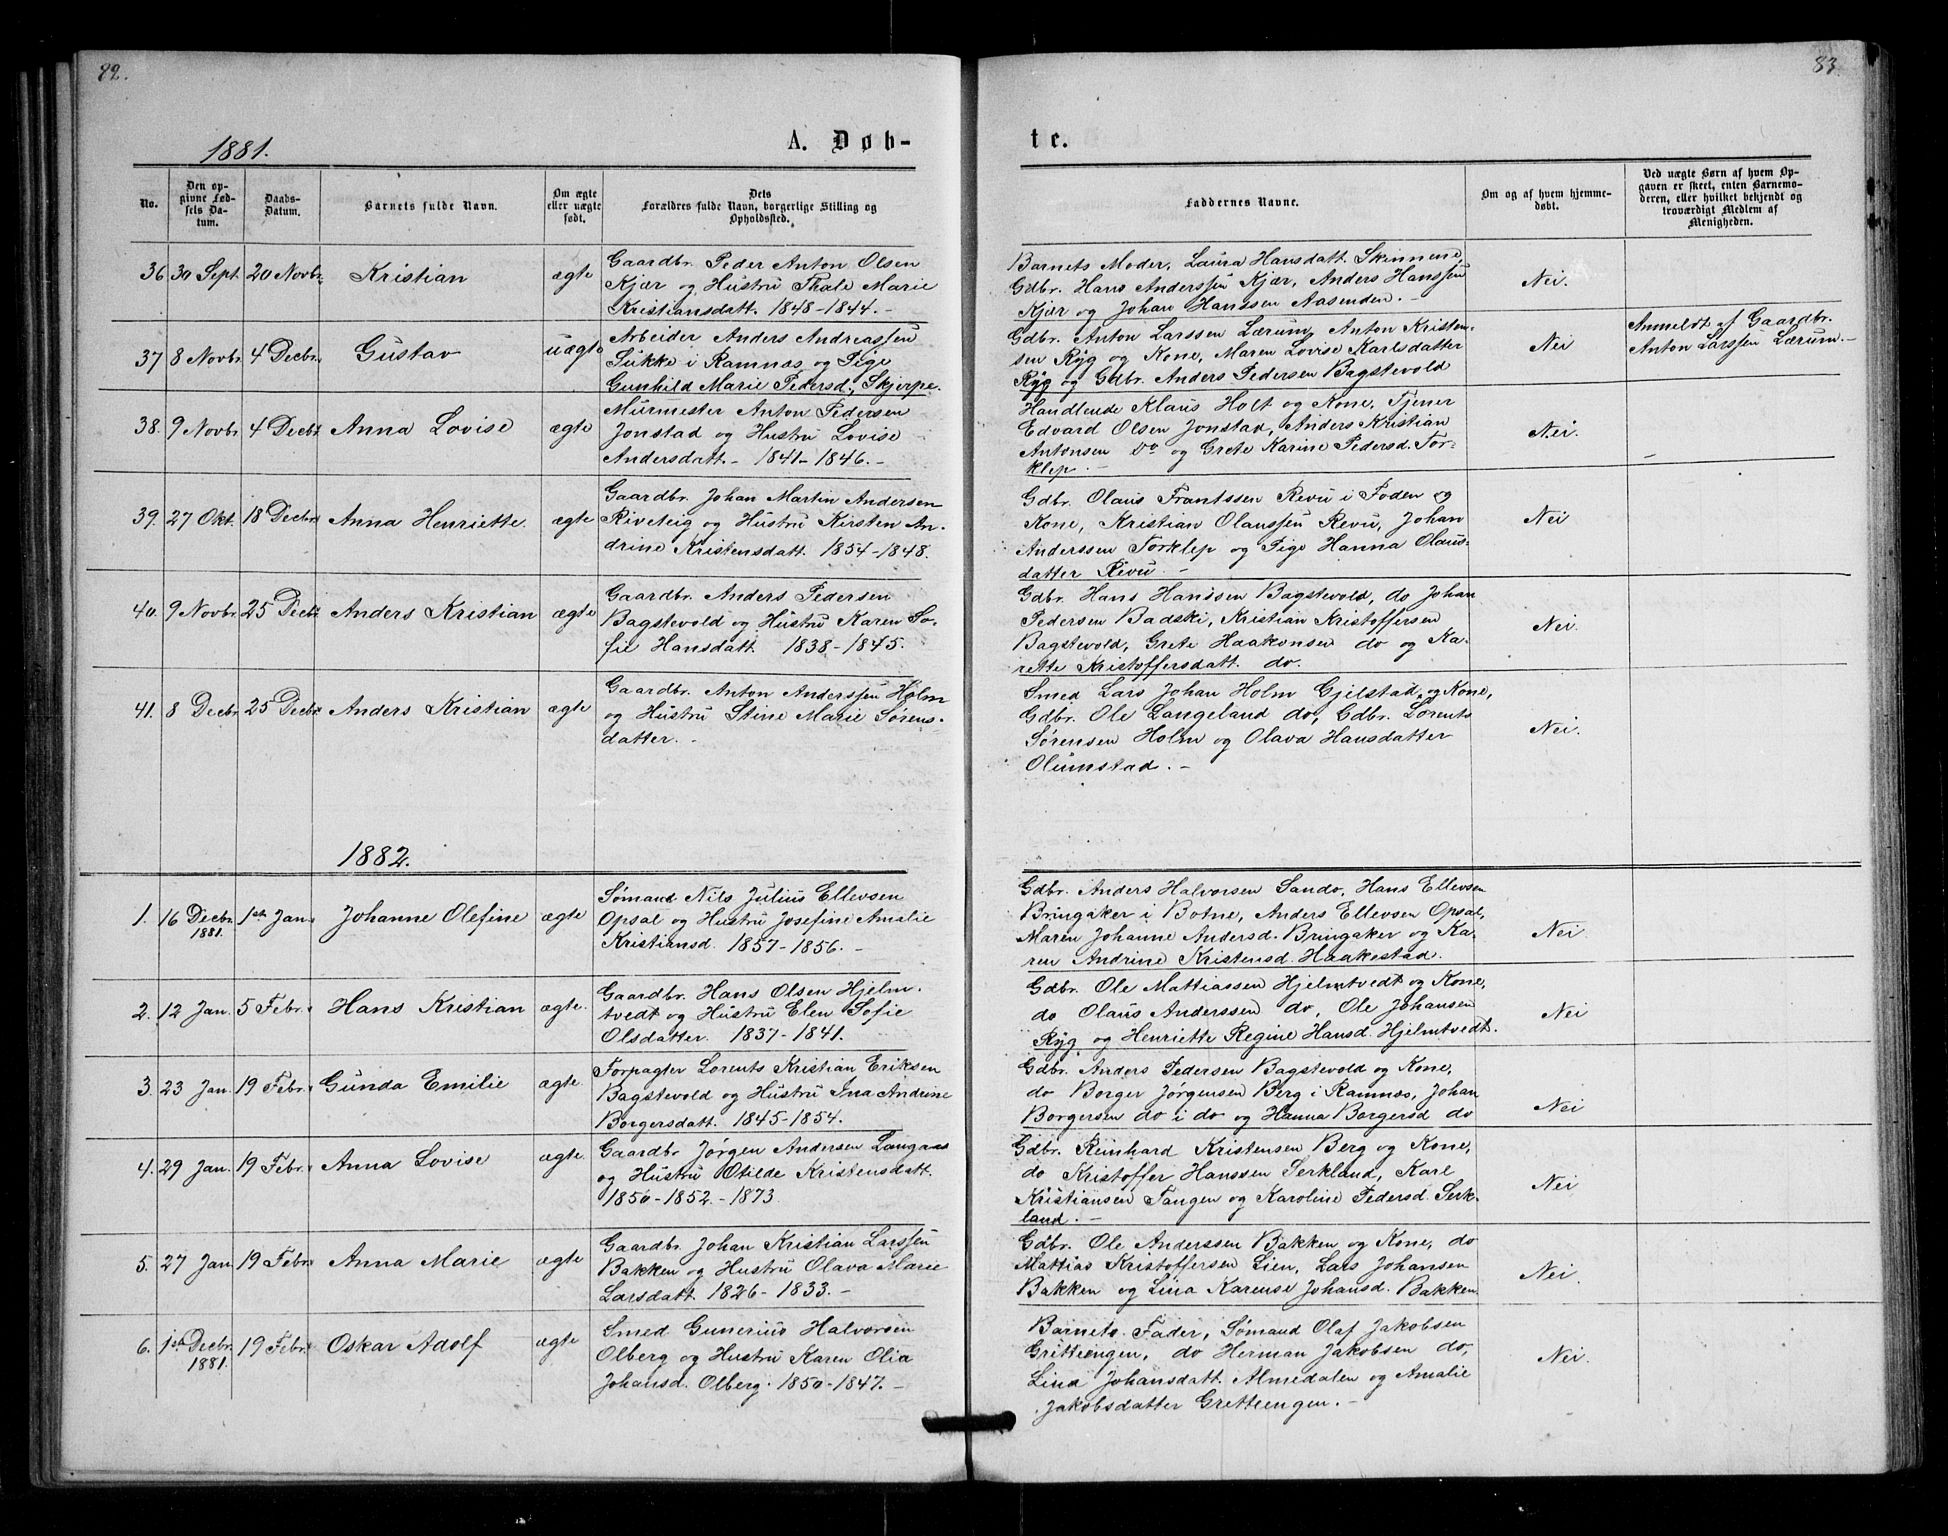 82.
83.
1881.
A. Døb-
te.
No.
Den op-
givne Fød-
sels Da-
tum.
Daabs-
Datum.
Barnets fulde Navn.
Om ægte
eller uægte
født.
Dets
Forældres fulde Navn, borgerlige Stilling og
Opholdsted.
Faddernes Navne.
Om og af hvem hjemme-
døbt.
Ved uægte Børn af hvem Op-
gaven er skeet, enten Barnemo-
deren, eller hvilket bekjendt og
troværdigt Medlem af
Menigheden.
36 30 Sept. 20 Novbr. Kristian ægte
Gaardbr. Peder Anton Olsen
Kjær og Hustru Thale Marie
Kristiansdatt. 1848-1844.-
Barnets Moder, Laura Hansdatt. Skinmene,
Gdbr. Hans Anderssen Kjær, Anders Hanssen
Kjær og Johan Hanssen Aasenden.-
Nei.
37 8 Novbr. 4 Decbr. Gustav uægte
Arbeider Anders Andreassen
Sukke i Ramnæs og Pige
Gunhild Marie Pedersd. Skjerpe.
Gdbr. Anton Larssen Lærum, Anton Kristen-
sen Ryg og Kone, Maren Lovise Karlsdatter
Ryg og Gdbr. Anders Pedersen Bagstevold
Nei
Anmeldt af Gaardbr.
Anton Larssen Lærum.-
38. 9 Novbr. 4 Decbr. Anna Lovise ægte
Murmester Anton Pedersen
Jonstad og Hustru Lovise
Andersdatt.- 1841-1846.-
Handlende Klaus Holt og Kone, Tjener
Edvard Olsen Jonstad, Anders Kristian
Antonsen Do og Grete Karine Pedersd. Tor-
klep.-
Nei.
39. 27 Okt. 18 Decbr. Anna Henriette. ægte
Gaardbr. Johan Martin Andersen
Riveteig og Hustru Kirsten An-
drine Kristensdatt. 1854-1848.
Gdbr. Olaus Frantssen Revu i Foden og
Kone, Kristian Olaussen Revu, Johan
Anderssen Torklep og Pige Hanna Olaus-
datter Revu.-
Nei
40. 9 Novbr. 25 Decbr. Anders Kristian ægte
Gaardbr. Anders Pedersen
Bagstevold og Hustru Karen So-
fie Hansdatt. 1838-1845.
Gdbr. Hans Hanssen Bagstevold, do Johan
Pedersen Badski, Kristian Kristoffersen
Bagstevold, Grete Haakonsen do og Ka-
rette Kristoffersdatt. do.
Nei.
41. 8 Decbr. 25 Decbr. Anders Kristian ægte
Gaardbr. Anton Anderssen Holm
og Hustru Stine Marie Sørens-
datter.-
Smed Lars Johan Holm Gjelstad og Kone,
Gdbr. Ole Langeland do, Gdbr. Lorents
Sørensen Holm og Olava Hansdatter
Olumstad.-
Nei.
1882.
1. 16 Decbr. 1ste Jan. Johanne Olefine ægte
1881.
Sømand Nils Julius Ellevsen
Opsal og Hustru Josefine Amalie
Kristiansd. 1857-1856.-
Gdbr. Anders Halvorsen Sando, Hans Ellevsen
Bringaker i Botne, Anders Ellevsen Opsal,
Maren Johanne Andersd. Bringaker og Ka-
ren Andrine Kristensd. Haakestad.
Nei.
2. 12 Jan. 5 Febr. Hans Kristian ægte.
Gaardbr. Hans Olsen Hjelm-
tvedt og Hustru Elen Sofie
Olsdatter. 1837-1841.
Gdbr. Ole Mattiassen Hjelmtvedt og Kone,
do Olaus Anderssen do, Ole Johansen
Ryg og Henriette Regine Hansd. Hjelmtvedt.
Nei
3. 23 Jan. 19 Febr. Gunda Emilie ægte
Forpagter Lorents Kristian Eriksen
Bagstevold og Hustru Ina Andrine
Borgersdatt. 1845-1854.
Gdbr. Anders Pedersen Bagstevold og Kone,
do Borger Jørgensen Berg i Ramnæs, Johan
Borgersen do i do og Hanna Borgersd do
Nei
4. 29 Jan. 19 Febr. Anna Lovise ægte
Gaardbr Jørgen Andersen Langaas
og Hustru Otilde Kristensdatt.
1850-1852.-1873.
Gdbr. Reinhard Kristensen Berg og Kone,
do Kristoffer Hanssen Serkland, Karl
Kristiansen Tangen og Karoline Pedersd. Serk-
land.-
Nei
5. 27 Jan. 19 Febr. Anna Marie ægte
Gaardbr. Johan Kristian Larssen
Bakken og Hustru Olava Marie
Larsdatt. 1826-1833.-
Gdbr. Ole Anderssen Bakken og Kone, do
Mattias Kristoffersen Lien, Lars Johansen
Bakken og Lina Karense Johansd. Bakken
Nei.
6. 1ste Decbr. 19 Febr. Oskar Adolf ægte
1881.
Smed Gunerius Halvorsen
Olberg og Hustru Karen Olia
Johansd. Olberg. 1850-1847.-
Barnets Fader, Sømand Olaf Jakobsen
Gretteengen, do Herman Jakobsen do,
Lina Johansdatt. Almedalen og Amalie
Jakobsdatter Gretteengen.-
Nei.